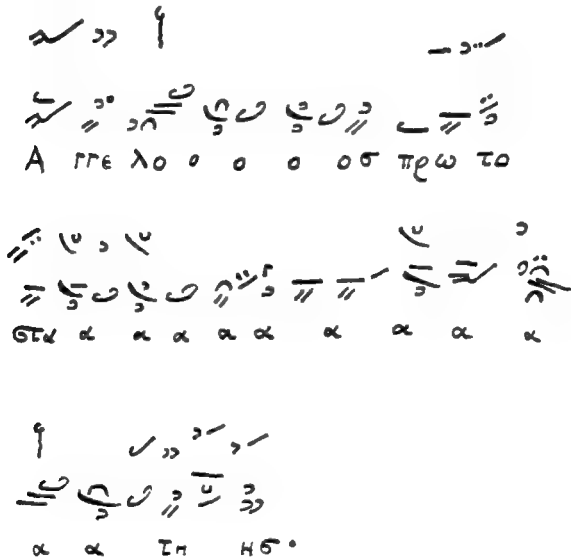 Α γγε λο ο ο ο οσ πρω το
στα α α α α α α α α
α α τη ησ·